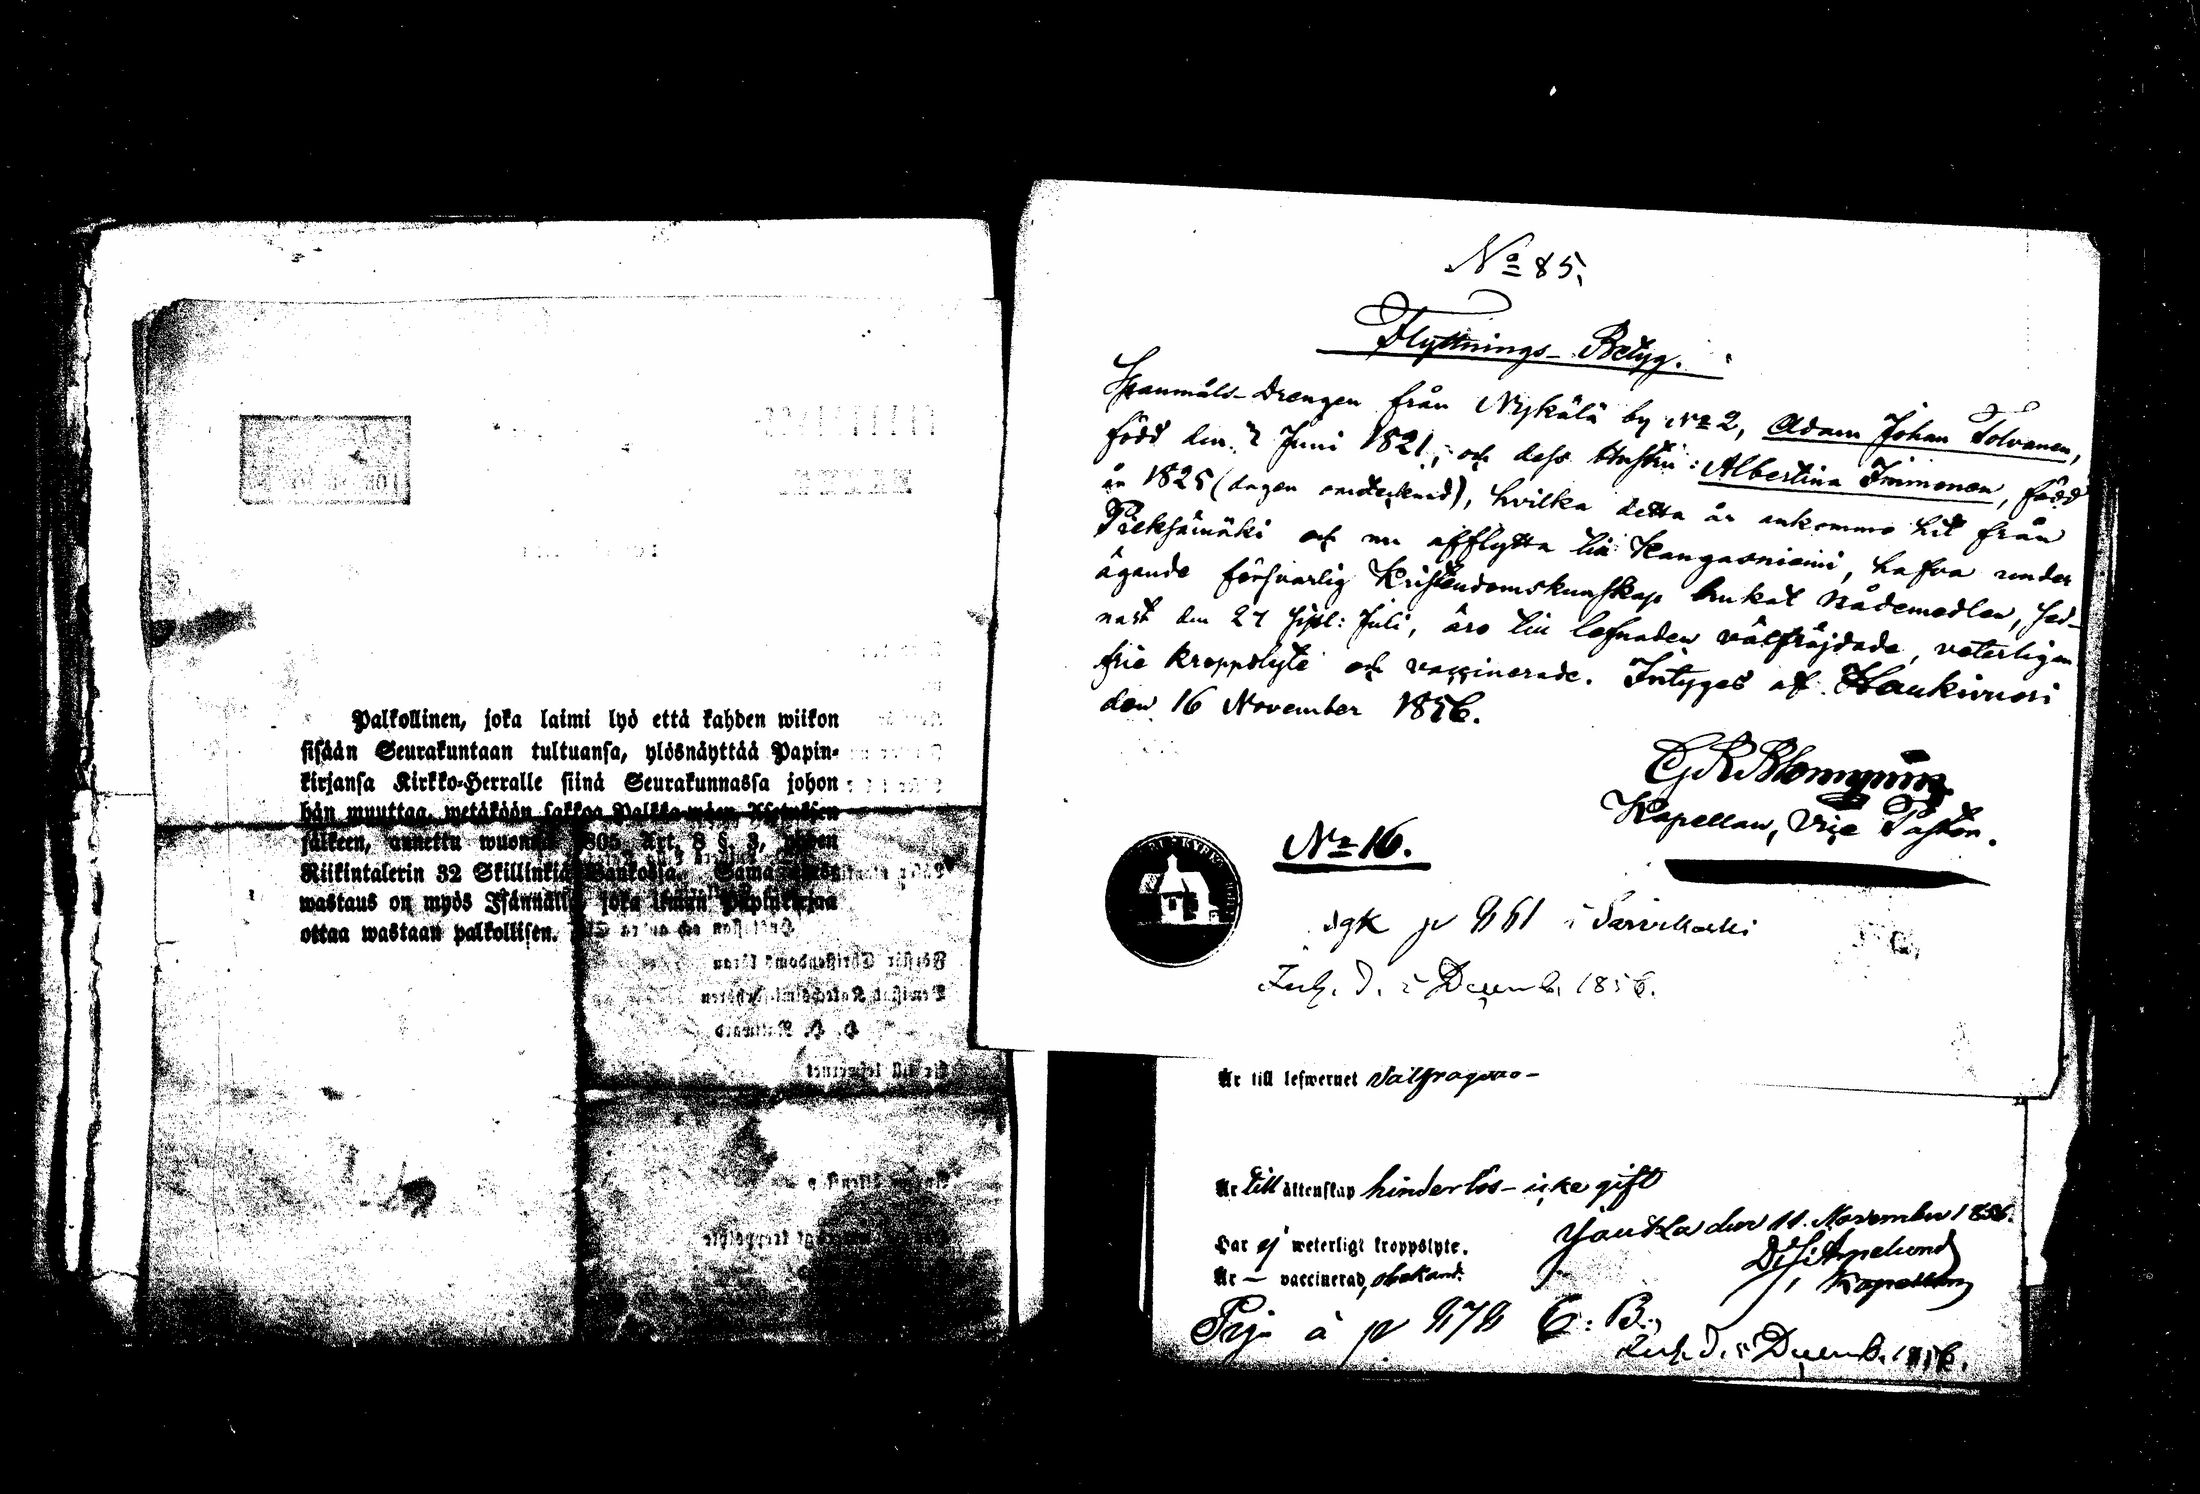 Palkollinen, joka laimi lyö että kahden wiikon
sisään Seurakuntaan tultuansa, ylösnäyttää Papin-
kirjansa Kirkko-Herralle siinä Seurakunnassa johon
hän muuttaa, wetäköön sakkoa Palkka-wäen Asetuksen
jälkeen, annettu wuonna 1805 Art. 8 §. 3, yhden
Riikintalerin 32 Skillinkiä Bankossa. Sama
wastaus on myös Isännällä, joka ilman Papinkirjaa
ottaa wastaan palkollisen.
No 85.
Flyttnings-Betyg.
Spanmåls-Drengen från Nykälä by No 2, Adam Johan Tolvanen,
född den 7 Juni 1821, och dess Hustru: Albertina Immonen, född
år 1825 (dagen oantecknad), hvilka detta år ankommo hit från
Pieksämäki och nu afflytta till Kangasniemi, hafva under
ägande försvarlig Kristendomskunskap brukat Nådemedlen, sed-
nast den 27 sistl: Juli, äro till lefnaden välfräjdade, veterligen
frie kroppslyte och vaccinerade. Intygas af Haukivuori
den 16 November 1856.
Kapellan, Vice Pastor.
No 16.
i Sarvikoski
d. 5 Decemb. 1856.
Är till lefwernet välfrägdad-
Är till äktenskap hinderlös - icke gift
Har ej weterligt kroppslyte.
Är — vaccinerad, obekant.
den 11. November 1856.
Kapellan
å p C. B.
d. 5 Decemb. 1856.